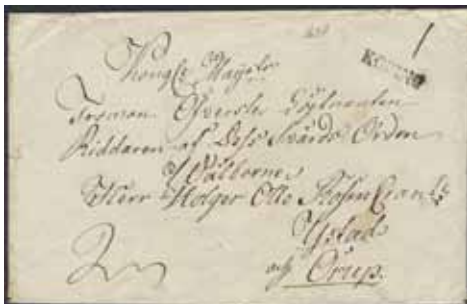 Kongl. Mayts
Troman Öfverste Löjtnanten
Riddaren af Dess Svärds Orden
Välborne
Herr Holger Otto Rosen Crantz
Ystad
och Örup.